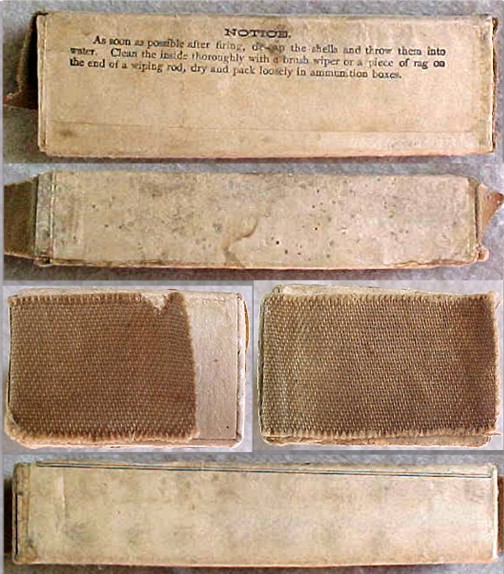 NOTICE.
As soon as possible after firing, de-cap the shells and throw them into
water. Clean the inside thoroughly with a brush wiper or a piece of rag on
the end of a wiping rod, dry and pack loosely in ammunition boxes.